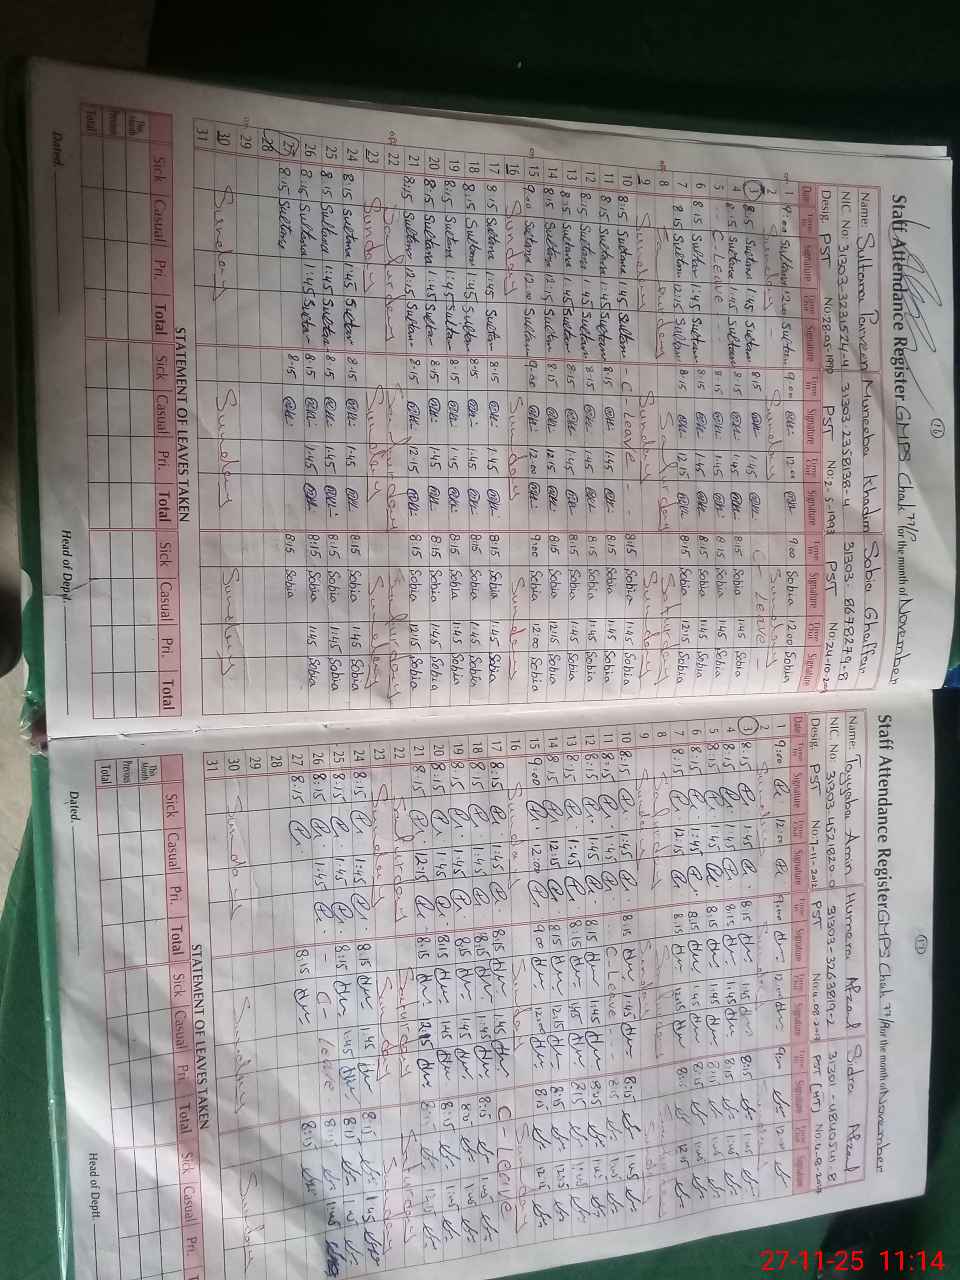 Staff Attendance Register GMPS Chak 77/P for the month of November
16
Name: Sultana Parveen Muneeba Khadim Sobia Ghaffar
NIC No. 31303-3231574-4 31303-2358138-4 31303 8678279-8
Desig. PST No:28-05-1990 PST No:2-5-1993 PST No:24-10-
Date Time In Signature Time Out Signature Time In Signature Time Out Signature Time In Signature Time Out Signature
1 9:00 Sultana 12:00 Sultana 9:00 12:00 9:00 Sobia 12:00 Sobia
2 Sunday Sunday Sunday
3 8:15 Sultana 1:45 Sultana 8:15 1:45 C - Leave -
4 8:15 Sultana 1:45 Sultana 8:15 1:45 8:15 Sobia 1:45 Sobia
5 - C - Leave - - 8:15 1:45 8:15 Sobia 1:45 Sobia
6 8:15 Sultana 1:45 Sultana 8:15 1:45 8:15 Sobia 1:45 Sobia
7 8:15 Sultana 12:15 Sultana 8:15 12:15 8:15 Sobia 12:15 Sobia
off 8 Saturday Saturday Saturday
9 Sunday Sunday Sunday
10 8:15 Sultana 1:45 Sultana - C - Leave - - 8:15 Sobia 1:45 Sobia
11 8:15 Sultana 1:45 Sultana 8:15 1:45 8:15 Sobia 1:45 Sobia
12 8:15 Sultana 1:45 Sultana 8:15 1:45 8:15 Sobia 1:45 Sobia
13 8:15 Sultana 1:45 Sultana 8:15 1:45 8:15 Sobia 1:45 Sobia
14 8:15 Sultana 12:15 Sultana 8:15 12:15 8:15 Sobia 12:15 Sobia
on 15 9:00 Sultana 12:00 Sultana 9:00 12:00 9:00 Sobia 12:00 Sobia
16 Sunday Sunday Sunday
17 8:15 Sultana 1:45 Sultana 8:15 1:45 8:15 Sobia 1:45 Sobia
18 8:15 Sultana 1:45 Sultana 8:15 1:45 8:15 Sobia 1:45 Sobia
19 8:15 Sultana 1:45 Sultana 8:15 1:45 8:15 Sobia 1:45 Sobia
20 8:15 Sultana 1:45 Sultana 8:15 1:45 8:15 Sobia 1:45 Sobia
21 8:15 Sultana 12:15 Sultana 8:15 12:15 8:15 Sobia 12:15 Sobia
off 22 Saturday Saturday Saturday
23 Sunday Sunday Sunday
24 8:15 Sultana 1:45 Sultana 8:15 1:45 8:15 Sobia 1:45 Sobia
25 8:15 Sultana 1:45 Sultana 8:15 1:45 8:15 Sobia 1:45 Sobia
26 8:15 Sultana 1:45 Sultana 8:15 1:45 8:15 Sobia 1:45 Sobia
27 8:15 Sultana 8:15 8:15 Sobia
28
29
30 Sunday Sunday Sunday
31
STATEMENT OF LEAVES TAKEN
Sick Casual Pri. Total Sick Casual Pri. Total Sick Casual Pri. Total
This Month
Previous
Total
Dated. Head of Deptt.
Staff Attendance Register GMPS Chak 77/P for the month of November
17
Name: Tayyaba Amin Humera Afzaal Sidra Afzaal
NIC No. 31303-4521820- 31303-3263819-2 31301-4840541-8
Desig. PST No:7-11-2012 PST PST (HT)
Date Time In Signature Time Out Signature Time In Signature Time Out Signature Time In Signature Time Out Signature
1 9:00 12:00 9:00 12:00 9:00 12:00
2 Sunday
3 8:15 1:45 8:15 1:45 8:15 1:45
4 8:15 1:45 8:15 1:45 8:15 1:45
5 8:15 1:45 8:15 1:45 8:15 1:45
6 8:15 1:45 8:15 1:45 8:15 1:45
7 8:15 12:15 8:15 12:15 8:15 12:15
8 Saturday
9 Sunday Sunday Sunday
10 8:15 1:45 8:15 1:45 8:15 1:45
11 8:15 1:45 C - Leave - - 8:15 1:45
12 8:15 1:45 8:15 1:45 8:15 1:45
13 8:15 1:45 8:15 1:45 8:15 1:45
14 8:15 12:15 8:15 12:15 8:15 12:15
15 9:00 12:00 9:00 12:00 8:15
16 Sunday Sunday Sunday
17 8:15 1:45 8:15 1:45 C - Leave
18 8:15 1:45 8:15 1:45 8:15 1:45
19 8:15 1:45 8:15 1:45 1:45
20 8:15 1:45 8:15 1:45 8:15 1:45
21 8:15 12:15 8:15 12:15 12:15
22 Saturday Saturday Saturday
23 Sunday Sunday Sunday
24 8:15 1:45 8:15 1:45 8:15 1:45
25 8:15 1:45 8:15 1:45 8:15 1:45
26 8:15 1:45 - C - Leave 8:15 1:45
27 8:15 8:15 8:15
28
29
30 Sunday Sunday Sunday
31
STATEMENT OF LEAVES TAKEN
Sick Casual Pri. Total Sick Casual Pri. Total Sick Casual Pri.
This Month
Previous
Total
Dated. Head of Deptt.
27-11-25 11:14